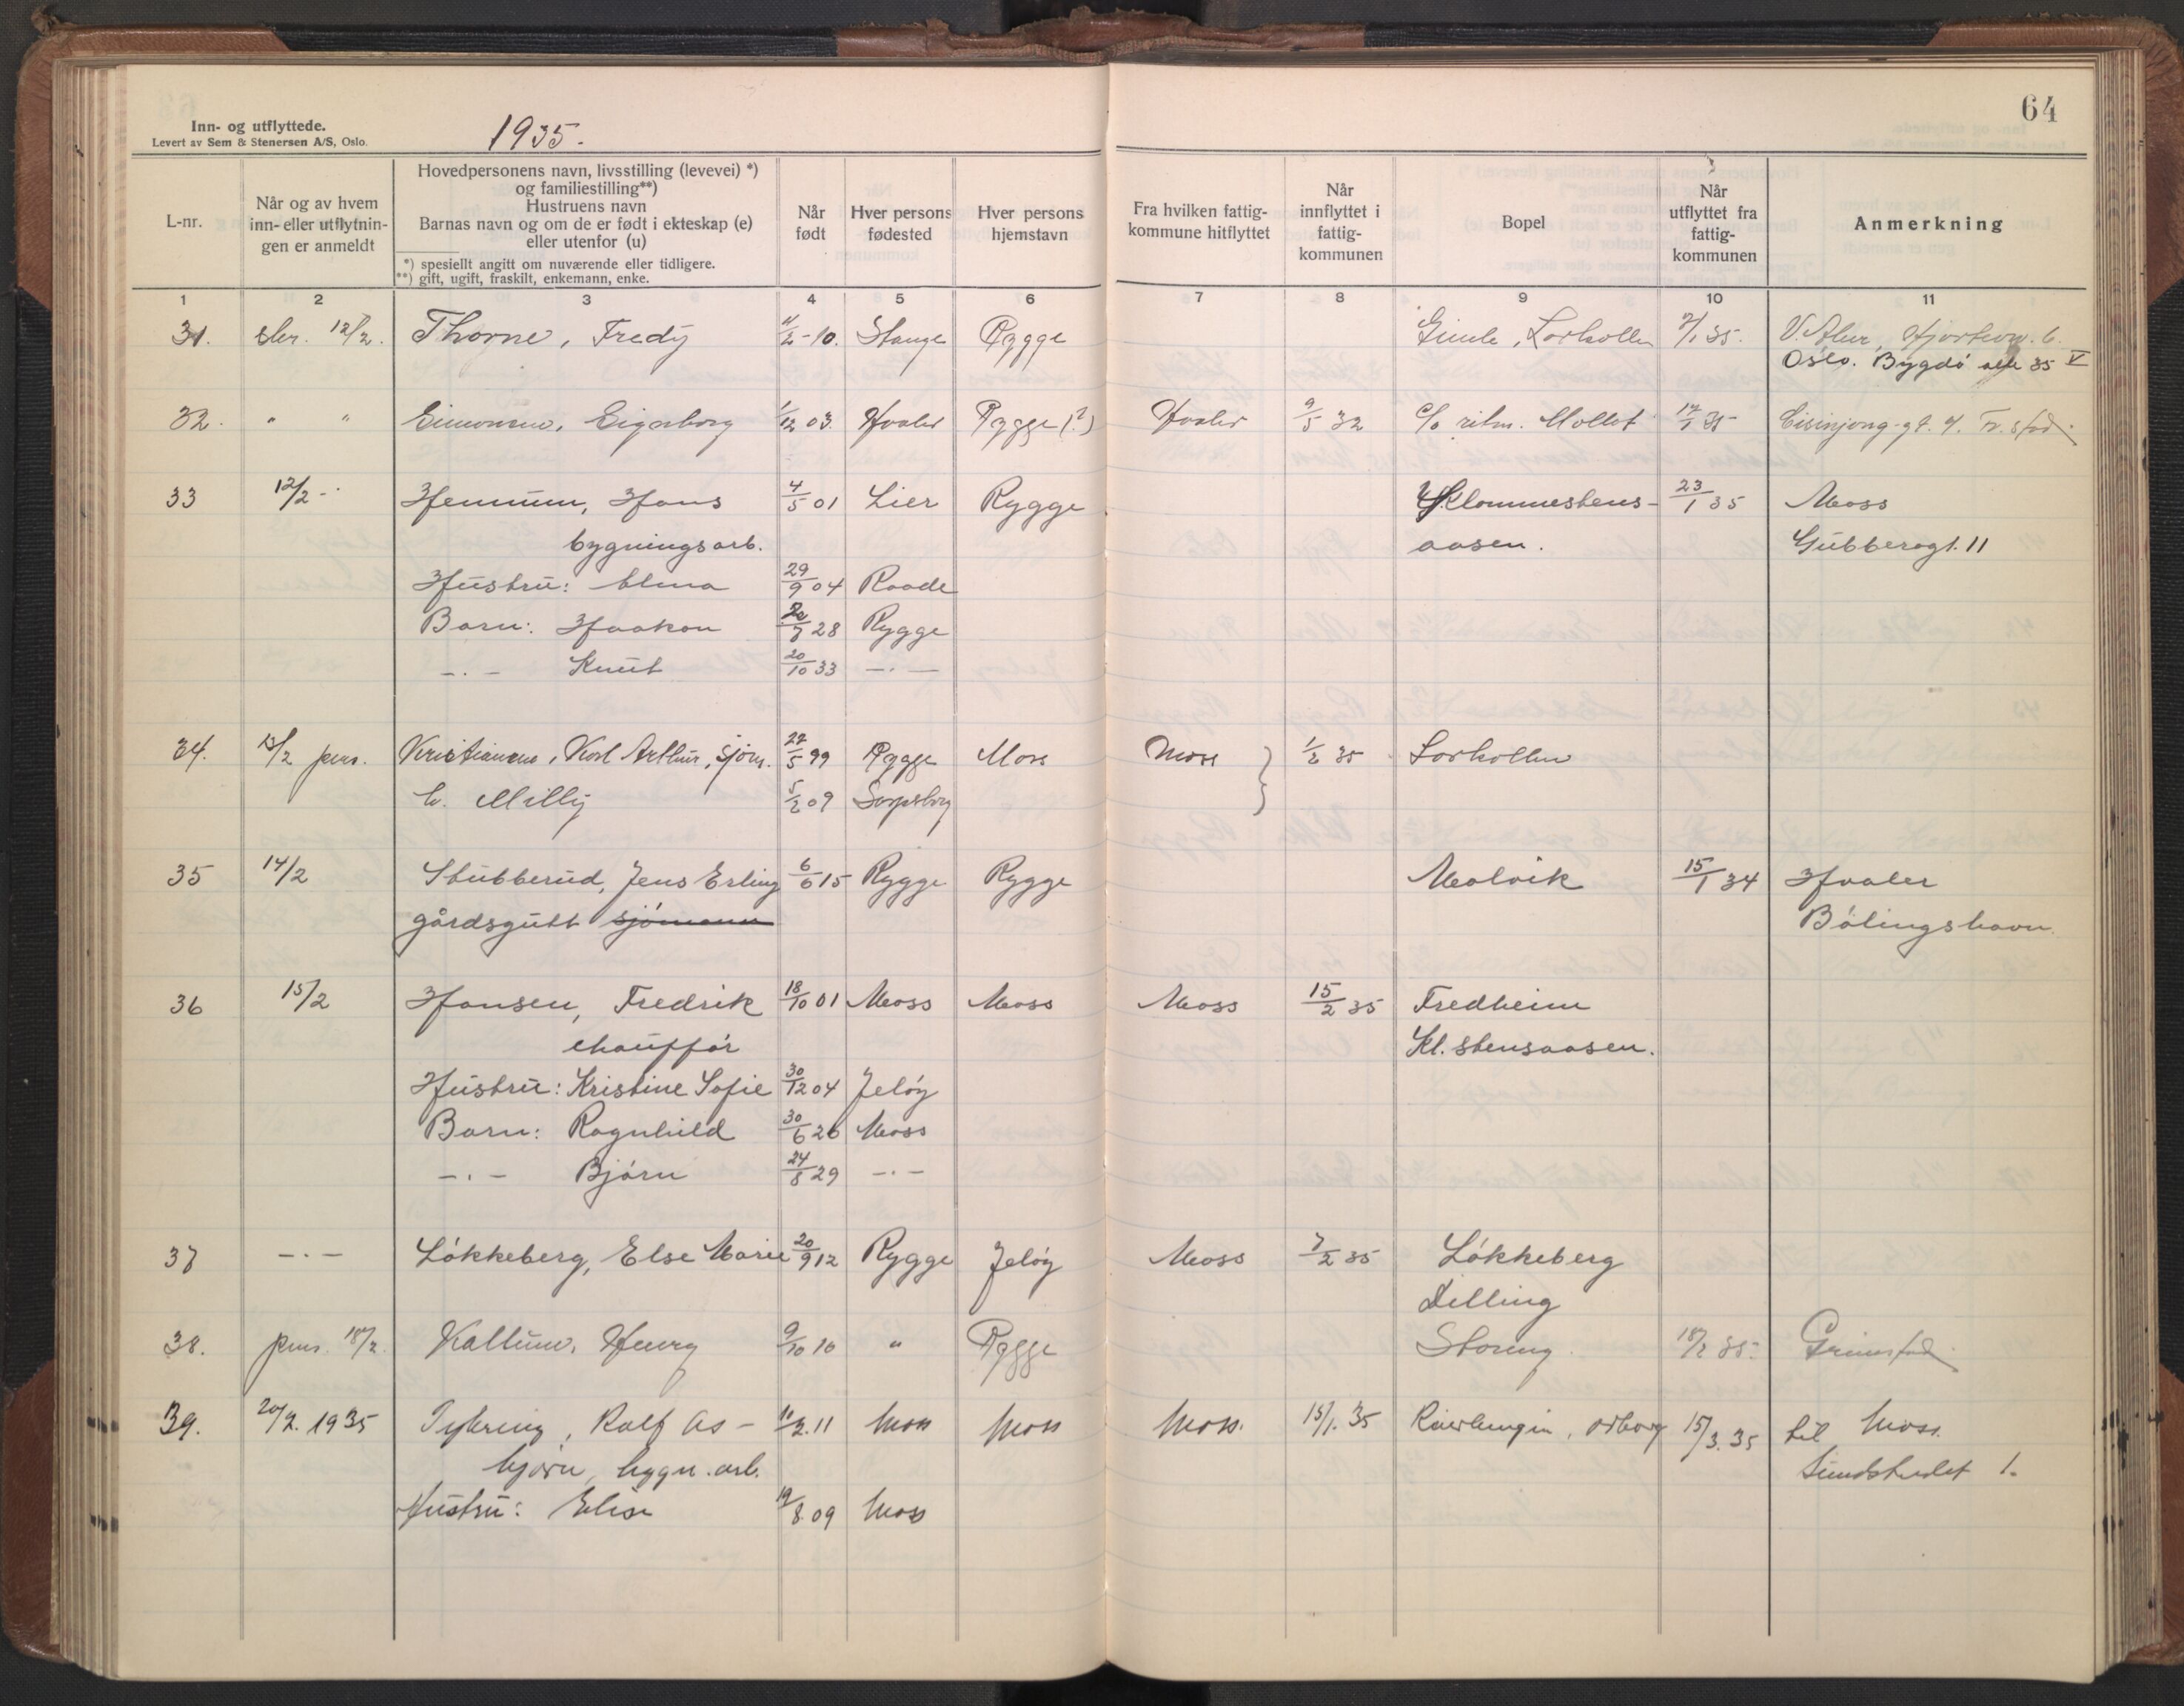 64
Inn- og utflyttede.
Levert av Sem & Stenersen A/S, Oslo.
1935.
L-nr.
Når og av hvem
inn- eller utflytnin-
gen er anmeldt
Hovedpersonens navn, livsstilling (levevei) *)
og familiestilling**)
Hustruens navn
Barnas navn og om de er født i ekteskap (e)
eller utenfor (u)
*) spesiellt angitt om nuværende eller tidligere.
**) gift, ugift, fraskilt, enkemann, enke.
Når
født
Hver persons
fødested
Hver persons
hjemstavn
Fra hvilken fattig-
kommune hitflyttet
Når
innflyttet i
fattig-
kommunen
Bopel
Når
utflyttet fra
fattig-
kommunen
Anmerkning
1 2 3 4 5 6 7 8 9 10 11
31. skr. 12/2. Thorne, Fredy 2-10. Stange Rygge Gimle, Larkollen /1 35.
Oslo. Bygdø alle 35 V
32. " " Simonsen, 1/12 03. Hvaler Rygge (?) Hvaler 9/5 32 c/o ritm. 
33 12/2 -·- Hemmum, Hans 4/5 01 Lier Rygge Klommestens- 23/1 35 Moss
bygningsarb. aasen. Gubberogt. 11
Hustru: Alma 29/9 04 Raade
Barn: Haakon 28 Rygge
-·- Knut 20/10 33 -·-
34. 13/2 pers. Kristiansen, Karl Arthur, sjøm. 22/5 99 Rygge Moss Moss } 1/2 35 Larkollen
h. Milly 5/2 09 Sarpsborg
35 14/2 Stubberud, Jens Erling 6/6 15 Rygge Rygge Malvik 15/1 34 Hvaler
gårdsgutt sjømann Bølingshavn.
36 15/2 Hansen, Fredrik 18/10 01 Moss Moss Moss 15/2 35 Fredheim
chauffør Kl. stensaasen.
Hustru: Kristine Sofie 30/12 04 Jeløy
Barn: Ragnhild 30/6 26 Moss
-·- Bjørn 24/8 29 -·-
37 -·- Løkkeberg, Else Marie 20/9 12 Rygge Jeløy Moss 7/2 35 Løkkeberg
Dilling
38. pers. 18/2. Kallum, Henry 9/10 10 " Rygge Støreng. 18/2 35. Grimstad
39. 20/2. 1935 Tyhring, Ralf As- 11/2.11 Moss Moss Moss. 15/1. 35 15/3. 35 til Moss.
bjørn, bygn. arb. Sundstredet 1.
Hustru: Elise 19/8.09 Moss